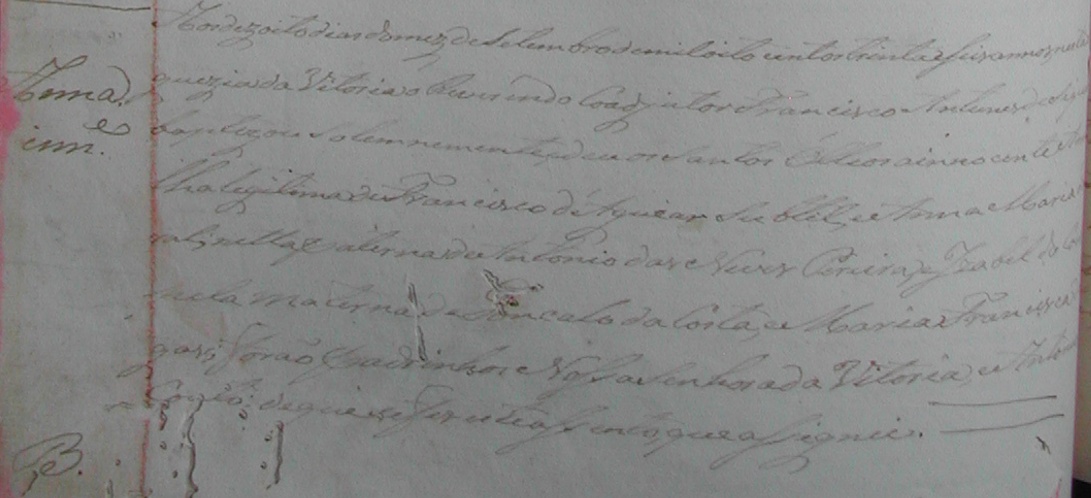 Aos dezoito dias do mez de Setembro de mil oito centos trinta e seis annos nesta
Anna. guezia da Vitoria o Reverendo Coadjutor Francisco Antunes de
e baptizou solemnemente, e deu os Santos Olleos a innocente
inn.
lha legitima de Francisco d'Aguiar e Anna Maria
ral; netta Paterna de Antonio das Neves Pereira, e Izabel da
neta materna de Goncalo da Costa, e Maria Francisca
gas; forão Padrinhos Nossa Senhora da Vitoria, e Antonio
Couto: de que se fez este assento, que assignei.
B.